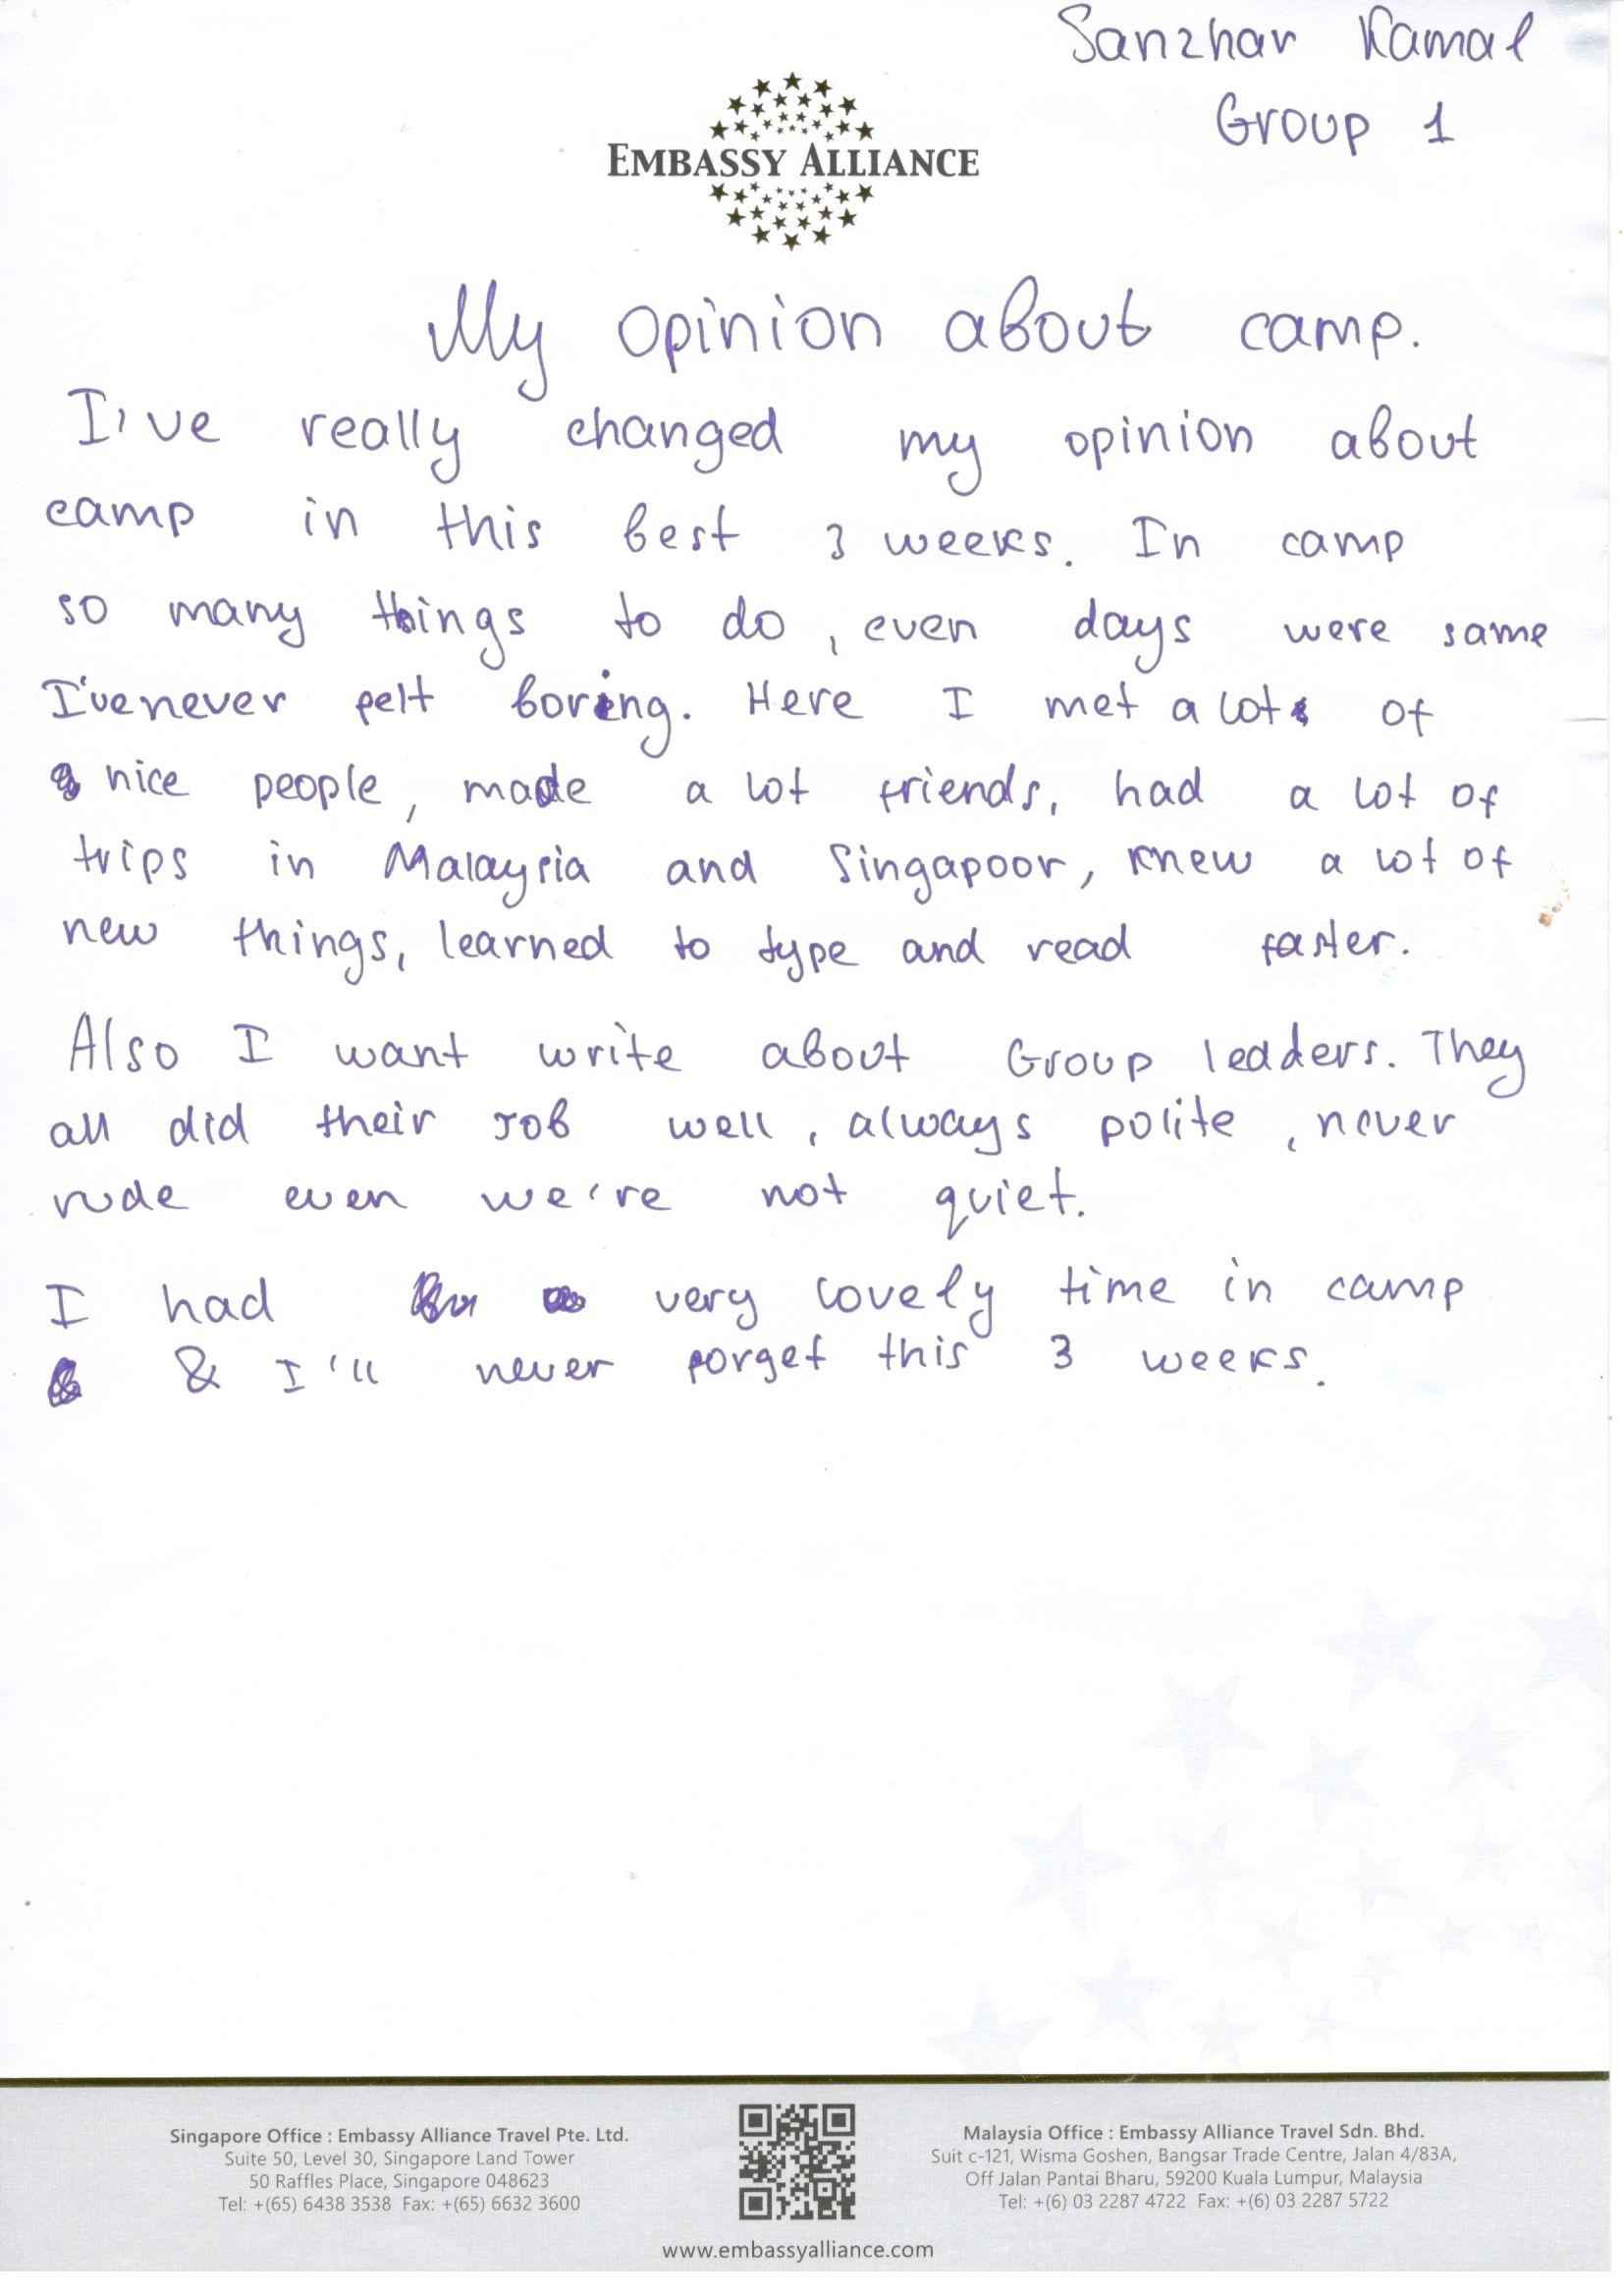 Sanzhar Kamal
Group 1
EMBASSY ALLIANCE
My opinion about camp.
I've really changed my opinion about
camp in this best 3 weeks. In camp
so many things to do, even days were same
I've never felt boring. Here I met a lot of
nice people, made a lot friends, had a lot of
trips in Malaysia and Singapoor, knew a lot of
new things, learned to type and read faster.
Also I want write about Group leaders. They
all did their job well, always polite, never
rude even we're not quiet.
I had very lovely time in camp
& I'll never forget this 3 weeks.
Singapore Office : Embassy Alliance Travel Pte. Ltd.
Suite 50, Level 30, Singapore Land Tower
50 Raffles Place, Singapore 048623
Tel: +(65) 6438 3538 Fax: +(65) 6632 3600
Malaysia Office : Embassy Alliance Travel Sdn. Bhd.
Suit c-121, Wisma Goshen, Bangsar Trade Centre, Jalan 4/83A,
Off Jalan Pantai Bharu, 59200 Kuala Lumpur, Malaysia
Tel: +(6) 03 2287 4722 Fax: +(6) 03 2287 5722
www.embassyalliance.com